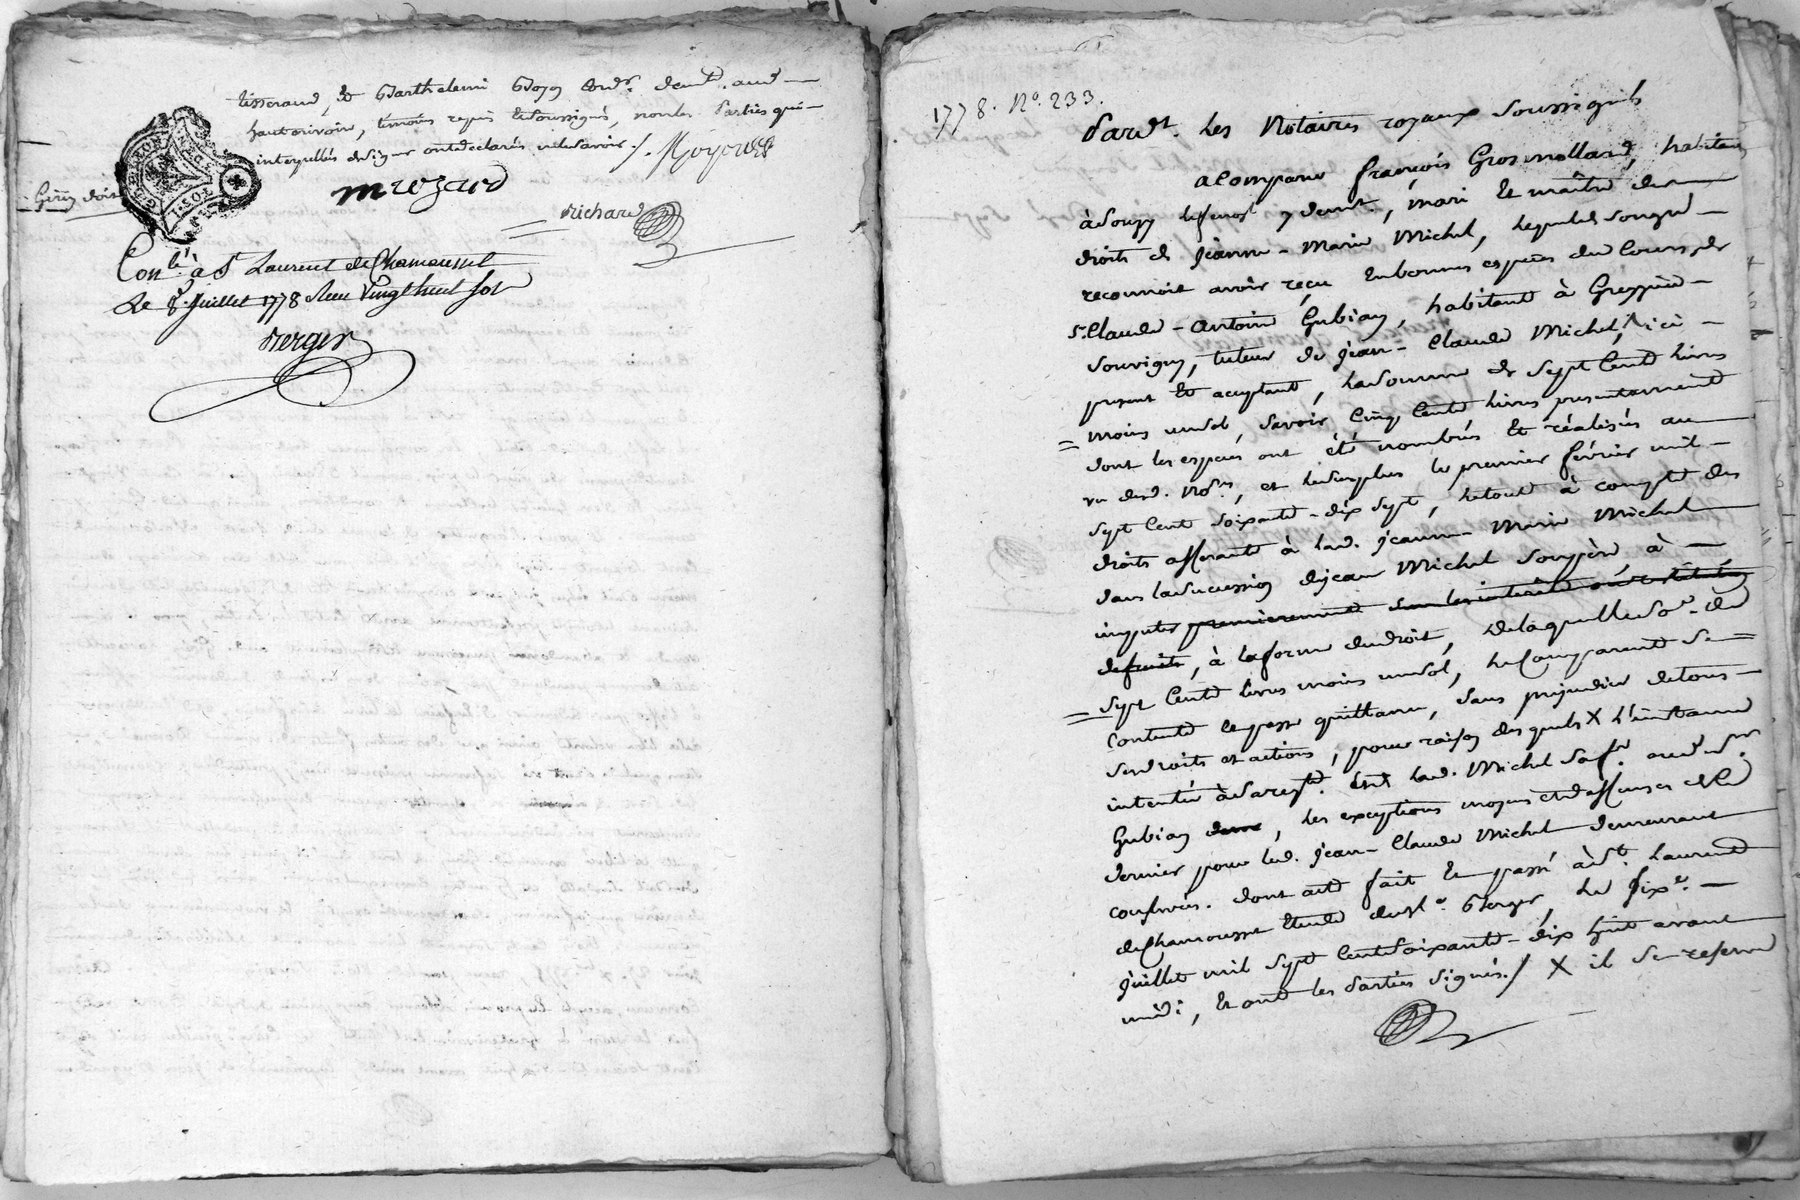 tisserand, et Barthelemi
hautrivoire, témoins requis et soussignés, non les parties qui
interpellées de signer ont declarés ne le savoir /.
mrozard
Richard
GENER LYON
Conlé à St Laurent de Chamousset
Le 8 Juillet 1778 Reçu vingt huit sols
Berger
1778. No. 233.
Pardt. Les Notaires royaux soussignés
a Comparu françois Grosmollard, habitant
à Souzy, mari et maître des
droits de Jeanne-Marie Michel, lequel de son gré
reconnoit avoir reçu en bonnes espèces du Cours, de
sr. Claude-Antoine Gubian, habitant à Grezieu
Souvigny, tuteur de Jean-Claude Michel, ici
present et acceptant, la somme de Sept Cent livres
moins un sol, savoir, Cinq Cent livres presentement
dont les especes ont été nombrés et réalisés au
vu desd. Nores, et le surplus le premier février mil
Sept Cent Soixante-dix Sept, le tout à compte des
droits afferants à lad. Jeanne-Marie Michel
dans la succession de Jean Michel son père, à
imputer premierement sur les intérêts ou restitution
de fruits, à la forme du droit, de laquelle some. de
Sept Cent livres moins un sol, le Comparant se
Contente et passe quittance, sans prejudice de tous
ses droits et actions, pour raison des quels X l'instance
intentée à sa reqte. et lad. Michel sa fe. aud. sr.
Gubian, les exceptions moyens et deffenses de ce
dernier pour led. Jean-Claude Michel demeurant
conservés. dont acte fait et passé à St. Laurent
de Chamousset Etude du Berger, le sixe.
Juillet mil Sept Cent Soixante-dix huit avant
midi, et ont les Parties signés./ X il se reserve